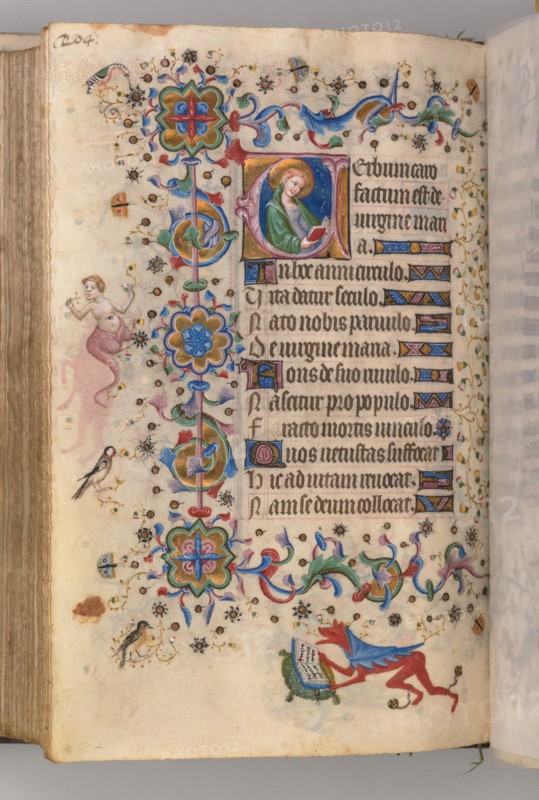 204.
Verbum caro
factum est de
uirgine mari
a.
In hoc anni circulo.
Uita datur seculo.
Nato nobis paruulo.
De uirgine maria.
Fons de suo riuulo.
Nascitur pro populo.
Fracto mortis uinculo.
Quos uetustas suffocat
Hic ad uitam reuocat.
Nam se deum collocat.
PHOTO12